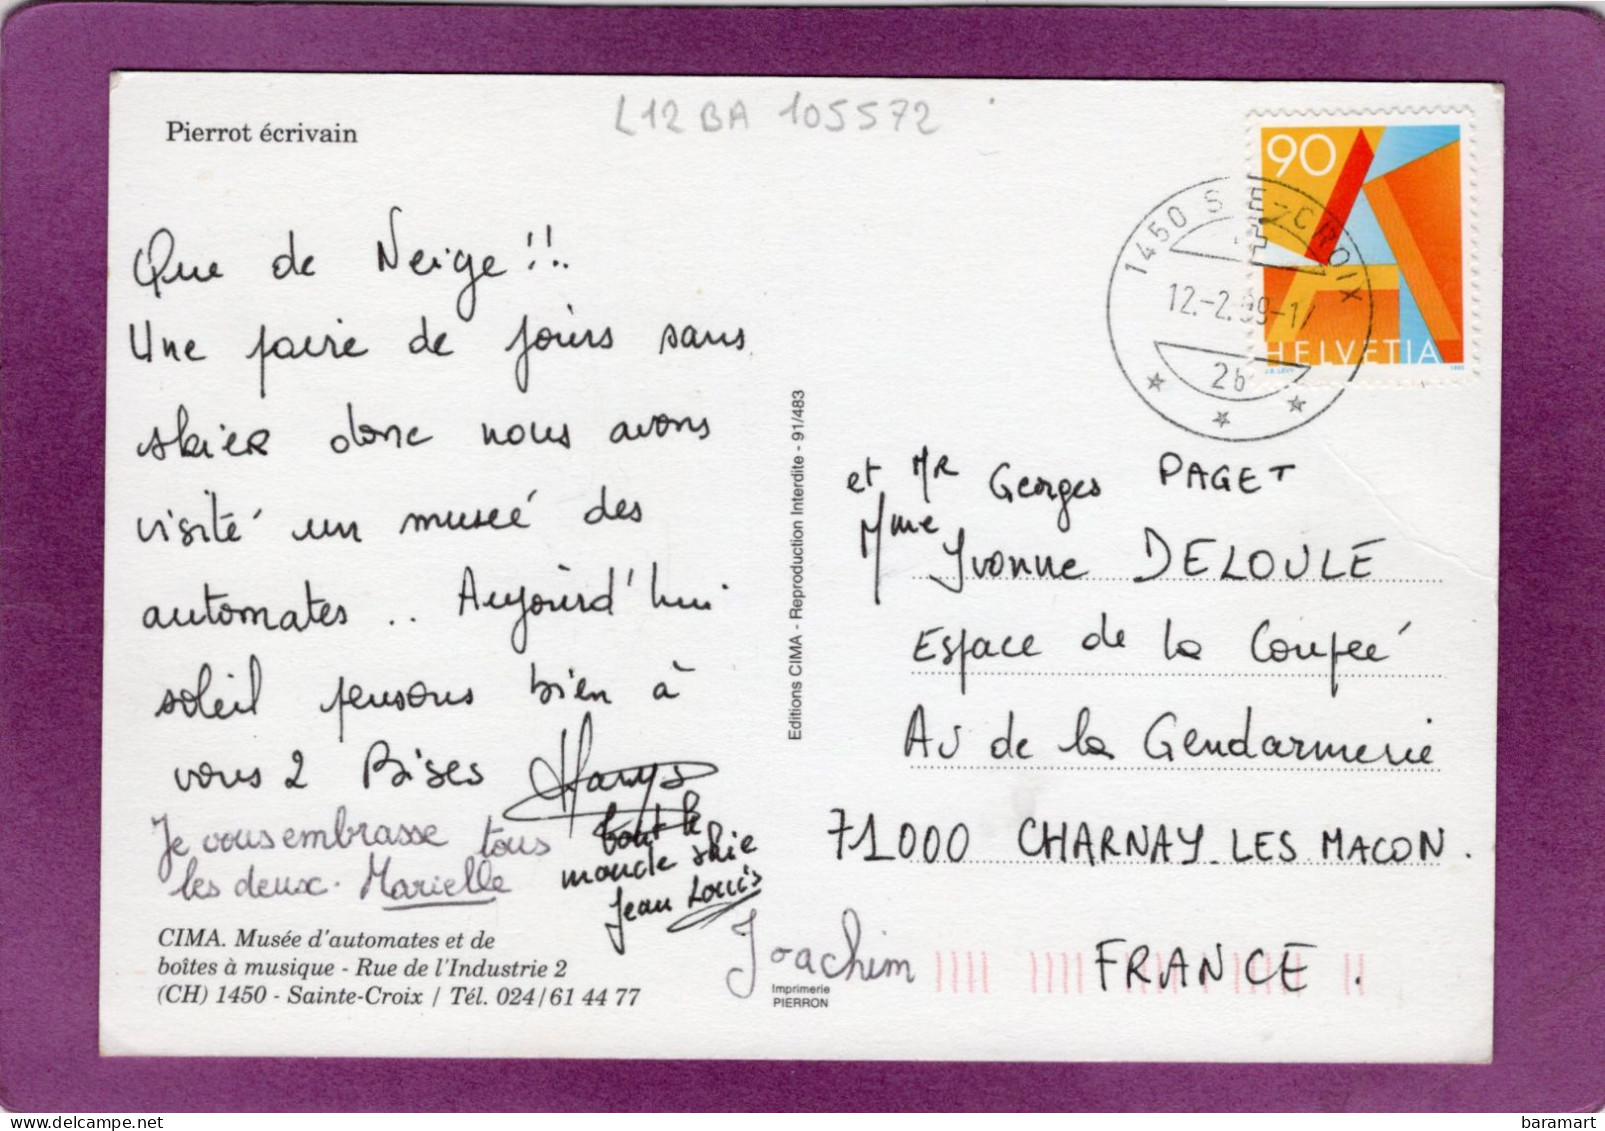 L12 BA 105572
Pierrot écrivain
90
HELVETIA
1450 STE-CROIX
12.-2.99-17
2b
Que de Neige !!..
Une paire de jours sans
skier donc nous avons
visité un museé des
automates .. Aujourd'hui
soleil pensons bien à
vous 2 Bises
Je vous embrasse tous
les deux. Marielle
tout le
monde skie
Jean Louis
Joachim
CIMA. Musée d'automates et de
boîtes à musique - Rue de l'Industrie 2
(CH) 1450 - Sainte-Croix / Tél. 024/61 44 77
Editions CIMA - Reproduction Interdite - 91/483
Imprimerie
PIERRON
et MR Georges PAGET
Mme Yvonne DELOULE
Espace de la Coupeé
Av de la Gendarmerie
71000 CHARNAY-LES MACON.
FRANCE.
baramart